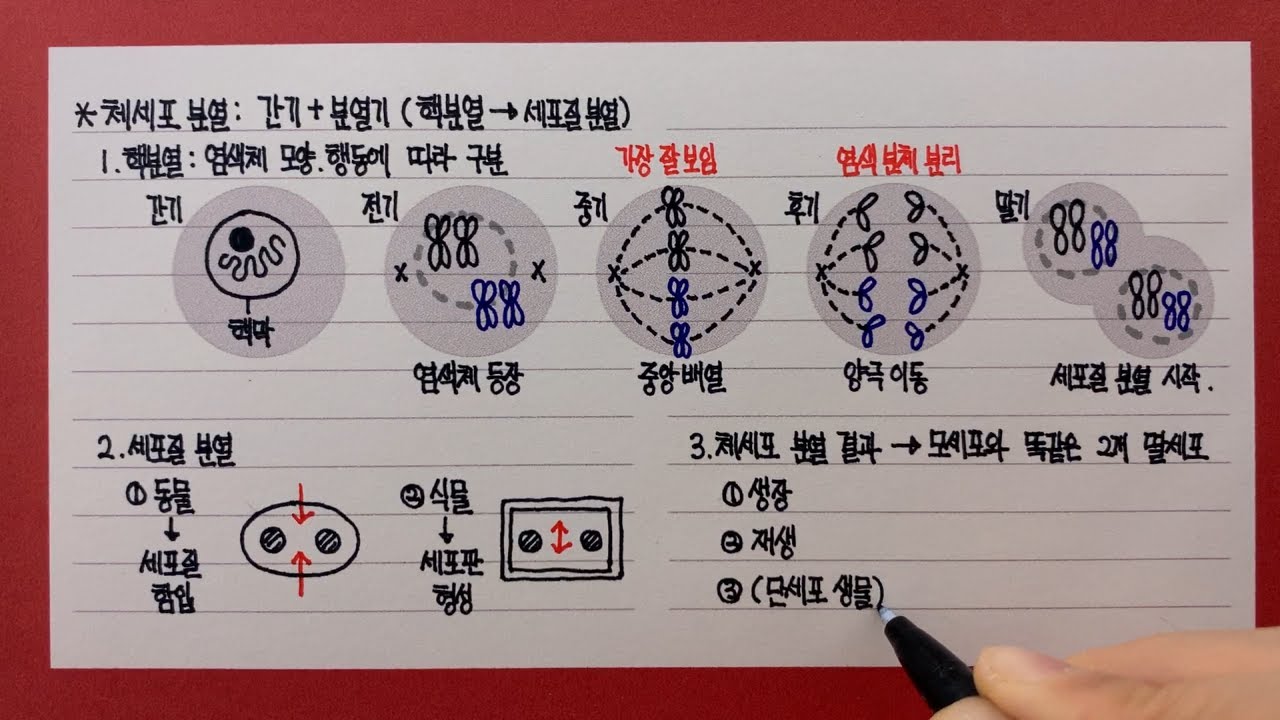 * 체세포 분열: 간기 + 분열기 (핵분열 → 세포질 분열)
1. 핵분열: 염색체 모양.행동에 따라 구분
가장 잘 보임 염색 분체 분리
간기 전기 중기 후기 딸기
핵막
염색체 등장 중앙 배열 양극 이동 세포질 분열 시작.
2. 세포질 분열
① 동물 ② 식물
↓ ↓
세포질 세포판
함입 형성
3. 체세포 분열 결과 → 모세포와 똑같은 2개 딸세포
① 생장
② 재생
③ (단세포 생물)